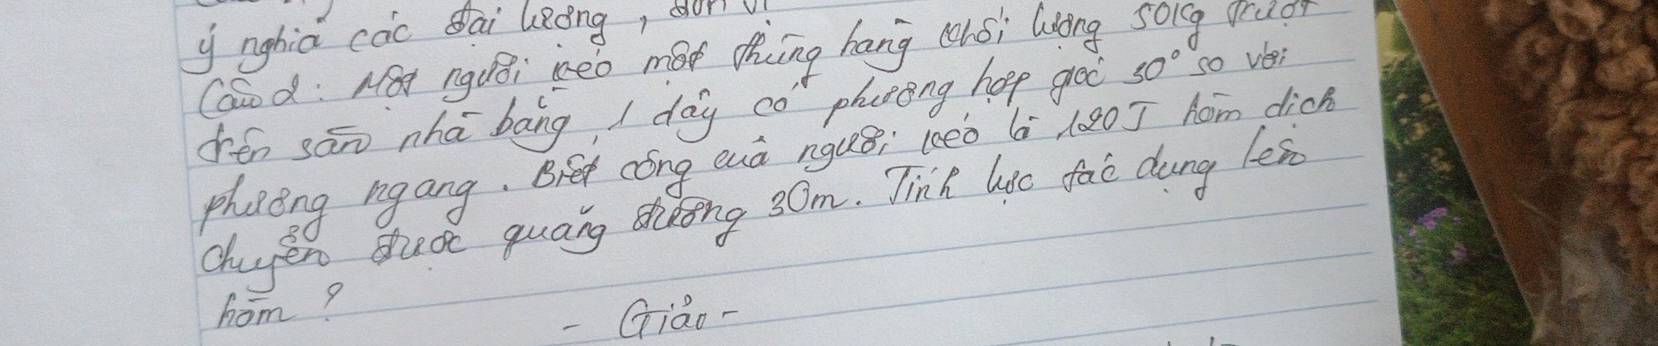 ý nghĩa các đại lượng, đơn vị
Câu 2: Một người kéo một thùng hàng khối lượng 50kg trượt
trên sàn nhà bằng 1 dây có phương hợp góc 30° so với
phương ngang. Biết công của người kéo là 120J hòm dịch
chuyển được quãng đường 30m. Tính lực tác dụng lên
hòm?
- Giải -